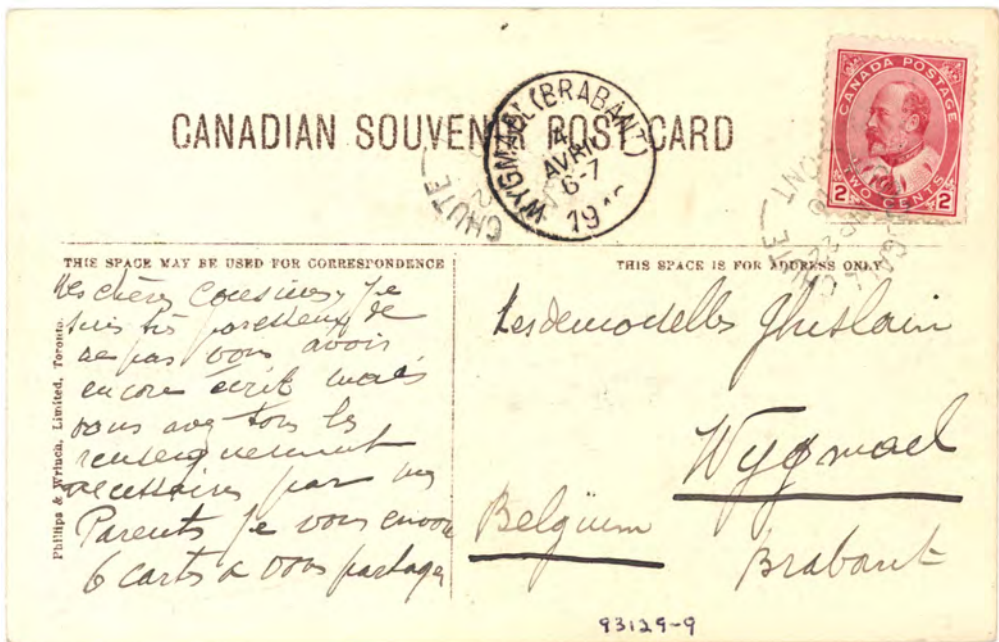 CANADA POSTAGE
2 TWO CENTS 2
CANADIAN SOUVENIR POST CARD
WYGMAEL (BRABANT)
4
AVRIL
6-7
19
CHUTE
CHUTE ONT
THIS SPACE MAY BE USED FOR CORRESPONDENCE
THIS SPACE IS FOR ADDRESS ONLY
Phillips & Wrinch, Limited, Toronto.
Mes chères Cousines, Je
suis très paresseux de
ne pas vous avoir
encore écrit mais
vous avez tous les
renseignement
necessaires par mes
Parents Je vous envoie
6 cartes a vous partager
Mesdemoiselles Ghislain
Wygmael
Belgium
Brabant
93129-9